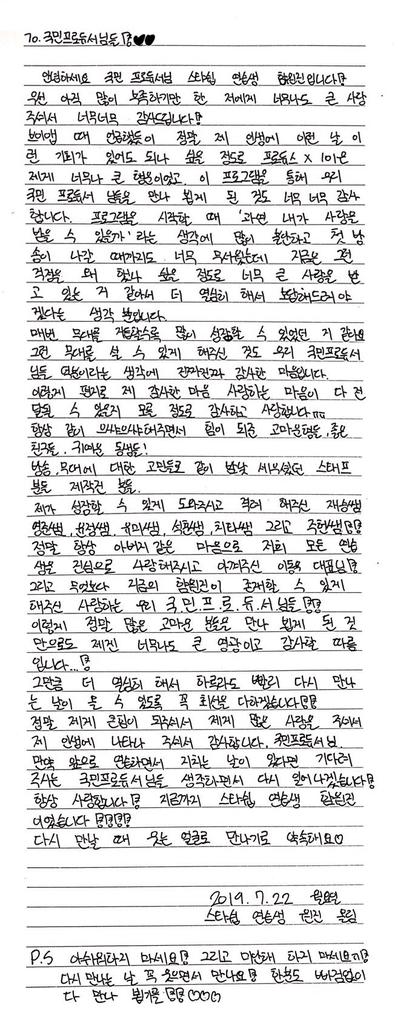 To. 국민프로듀서님들!♥♥
안녕하세요 국민 프로듀서님 스타쉽 연습생 함원진입니다!
우선 아직 많이 부족하기만 한 저에게 너무나도 큰 사랑
주셔서 너무너무 감사드립니다!
브이앱 때 언급했듯이 정말 제 인생에 이런 날 이
런 기회가 있어도 되나 싶은 정도로 프로듀스 X 101은
제게 너무나 큰 행운이었고, 이 프로그램을 통해 우리
국민 프로듀서 님들을 만나 뵙게 된 것도 너무 너무 감사
합니다. 프로그램을 시작할 때 '과연 내가 사랑을
받을 수 있을까' 라는 생각에 많이 불안하고 첫 방
송이 나갈 때까지도 너무 무서웠는데 지금은 그런
걱정을 왜 했나 싶은 정도로 너무 큰 사랑을 받
고 있는 거 같아서 더 열심히 해서 보답해드려야
겠다는 생각 뿐입니다.
매번 무대를 거듭할수록 많이 성장할 수 있었던 거 같아요
그런 무대를 설 수 있게 해주신 것도 우리 국민프로듀서
님들 덕분이라는 생각에 언제나 감사한 마음입니다.
이렇게 편지로 제 감사한 마음 사랑하는 마음이 다 전
달될 수 있을지 모를 정도로 감사하고 사랑합니다ㅠㅠ
항상 같이 으쌰으쌰해주면서 힘이 되준 고마운형들,좋은
친구들, 귀여운 동생들!
방송, 무대에 대한 고민들로 같이 밤낮 세우셨던 스태프
분들 제작진 분들.
제가 성장할 수 있게 도와주시고 격려 해주신 재승쌤
영준쌤, 윤정쌤, 유미쌤, 석훈쌤, 치타쌤 그리고 주현쌤!!
정말 항상 아버지 같은 마음으로 저희 모든 연습
생을 진심으로 사랑해주시고 아껴주신 이동욱 대표님!
그리고 무엇보다 지금의 함원진이 존재할 수 있게
해주신 사랑하는 우리 국.민.프.로.듀.서.님들!!
이렇게 정말 많은 고마운 분들을 만나 뵙게 된 것
만으로도 제겐 너무나도 큰 영광이고 감사할 따름
입니다...!
그만큼 더 열심히 해서 하루라도 빨리 다시 만나
는 날이 올 수 있도록 꼭 최선을 다하겠습니다!!
정말 제게 은인이 되주셔서 제게 많은 사랑을 주셔서
제 인생에 나타나 주셔서 감사합니다. 국민프로듀서님.
만약 앞으로 연습하면서 지치는 날이 있다면 기다려
주시는 국민프로듀서님들 생각하면서 다시 일어나겠습니다!
항상 사랑합니다! 지금까지 스타쉽 연습생 함원진
이었습니다!!!!
다시 만날 때 웃는 얼굴로 만나기로 약속해요♡
2019. 7. 22 월요일
스타쉽 연습생 원진 올림
P.S 아쉬워하지 마세요! 그리고 미안해 하지 마세요!
다시만나는 날 꼭 웃으면서 만나요! 한분도 빠짐없이
다 만나 뵙기를!! ♡♡♡